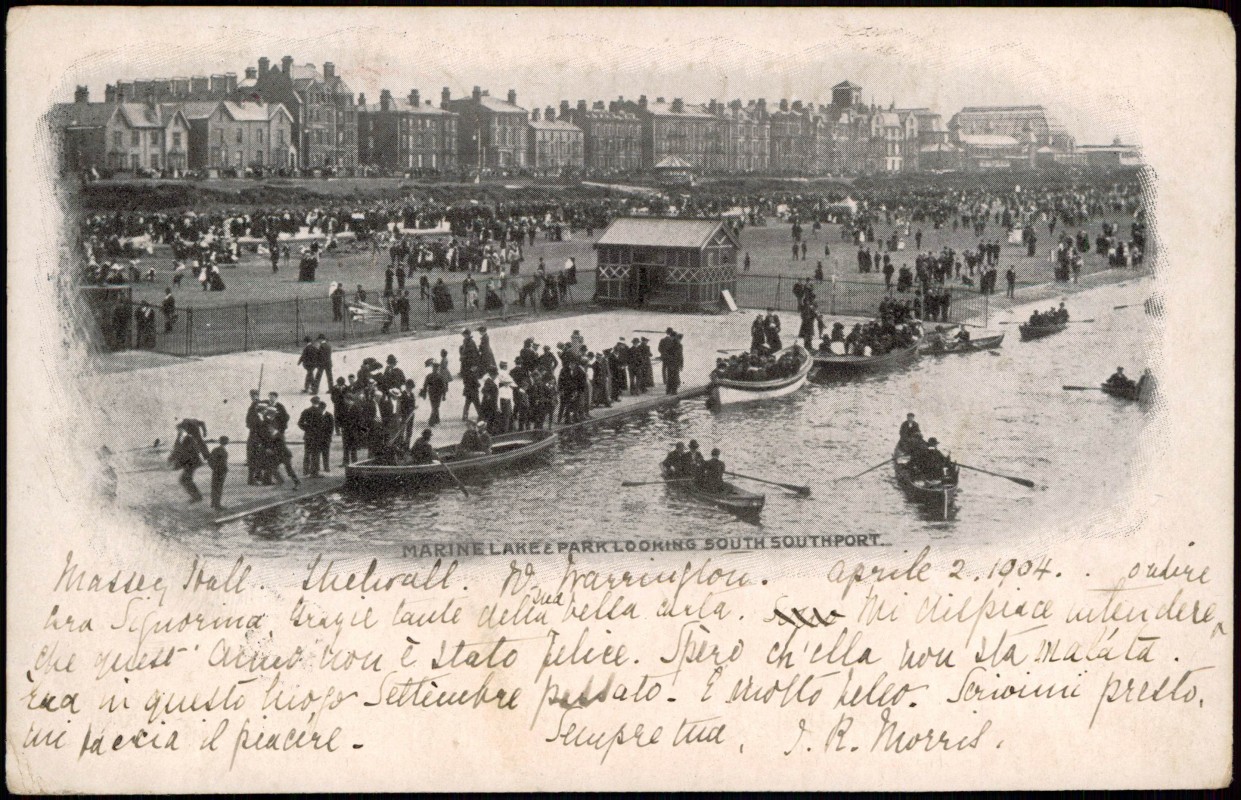 MARINE LAKE & PARK LOOKING SOUTH SOUTHPORT.
Massey Hall. Thelwall. Nr Warrington. Aprile 2. 1904. . o udire
Cara Signorina, Grazie tante della sua bella carta. Mi dispiace intendere
che quest' anno non è stato felice. Spèro ch'ella non sta maláta.
in questo luogo Settémbre passato. È molto bello. Scrivimi presto,
mi faccia il piacére.
Sempre tua, J. R. Morris.